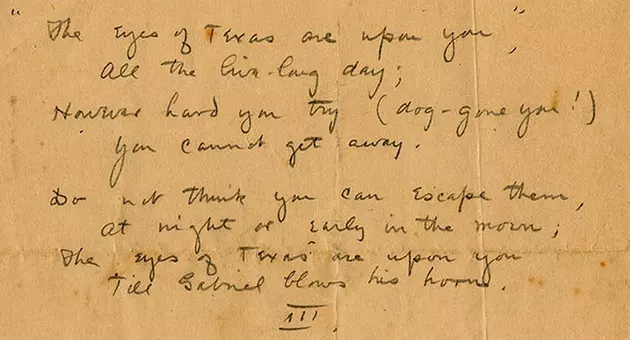 "The Eyes of Texas are upon you",
All the live-long day;
However hard you try (dog-gone you!)
You cannot get away.
Do not think you can Escape them,
At night or Early in the morn;
The Eyes of Texas are upon you
Till Gabriel blows his horn.
III.